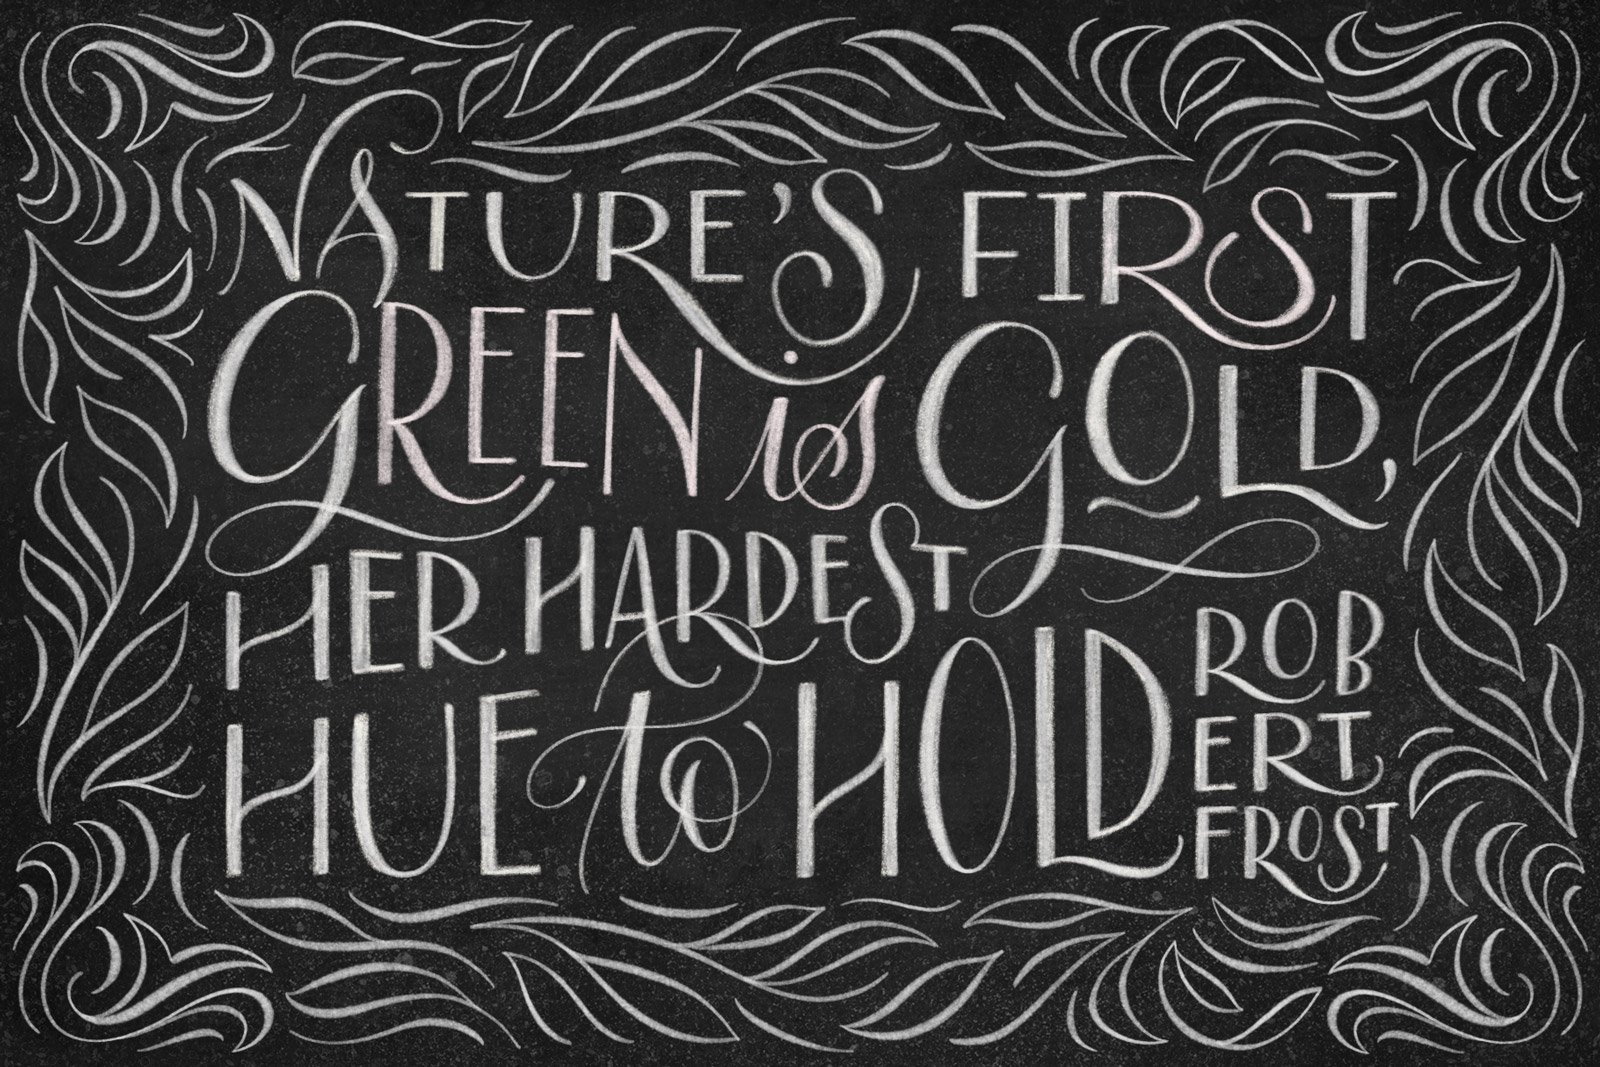 NATURE'S FIRST
GREEN is GOLD,
HER HARDEST
HUE to HOLD
ROB
ERT
FROST